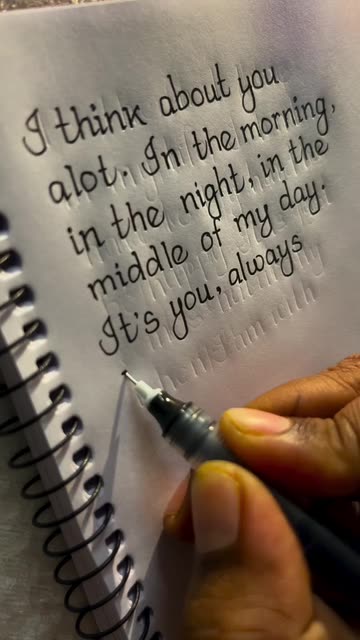 I think about you
alot. In the morning,
in the night, in the
middle of my day.
It's you, always